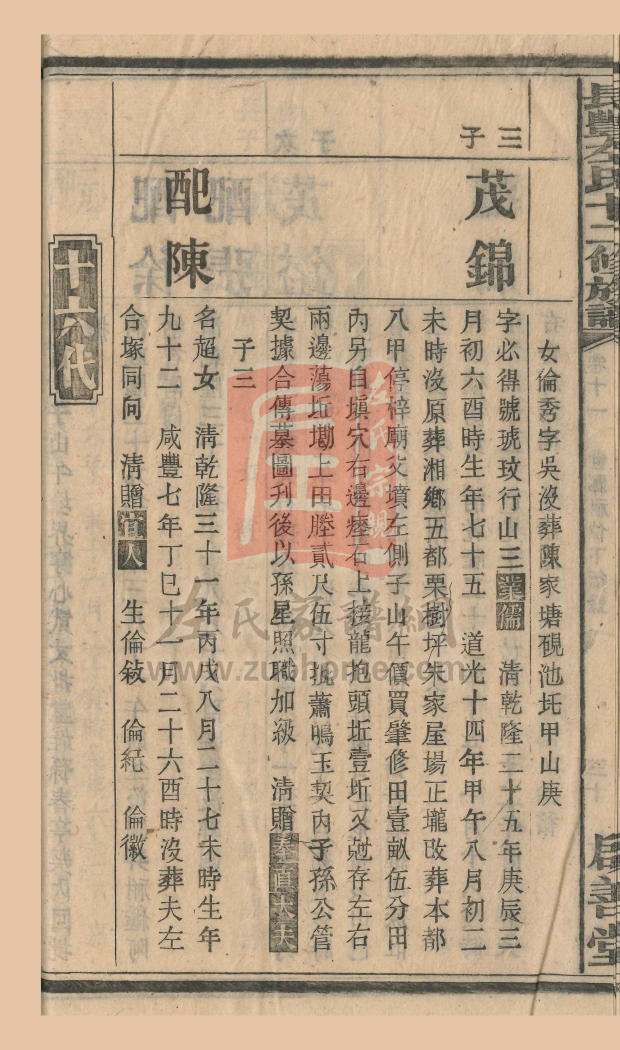 長豐左氏十二修族譜
啟善堂
三子
女倫秀字吳沒葬陳家塘硯池坵甲山庚
茂錦
字必得號琥玟行山三業儒 清乾隆二十五年庚辰三
月初六酉時生年七十五 道光十四年甲午八月初二
未時沒原葬湘鄉五都栗樹坪朱家屋場正壠改葬本都
八甲停梓廟父墳左側子山午價買肇修田壹畝伍分田
內另自塡穴右邊瘞石上接龍抱頭坵壹坵又
存左右
兩邊蕩坵墈上田塍貳尺伍寸
蕭鳴玉契內子孫公管
契據合傳墓圖刋後以孫星照職加級 清贈奉直大夫
子三
配陳
名超女 清乾隆三十一年丙戌八月二十七未時生年
九十二 咸豐七年丁巳十一月二十六酉時沒葬夫左
合塚同向 清贈宜人 生倫敍 倫紀 倫徽
十六代
左氏宗親
左氏家譜網
www.zuohome.com